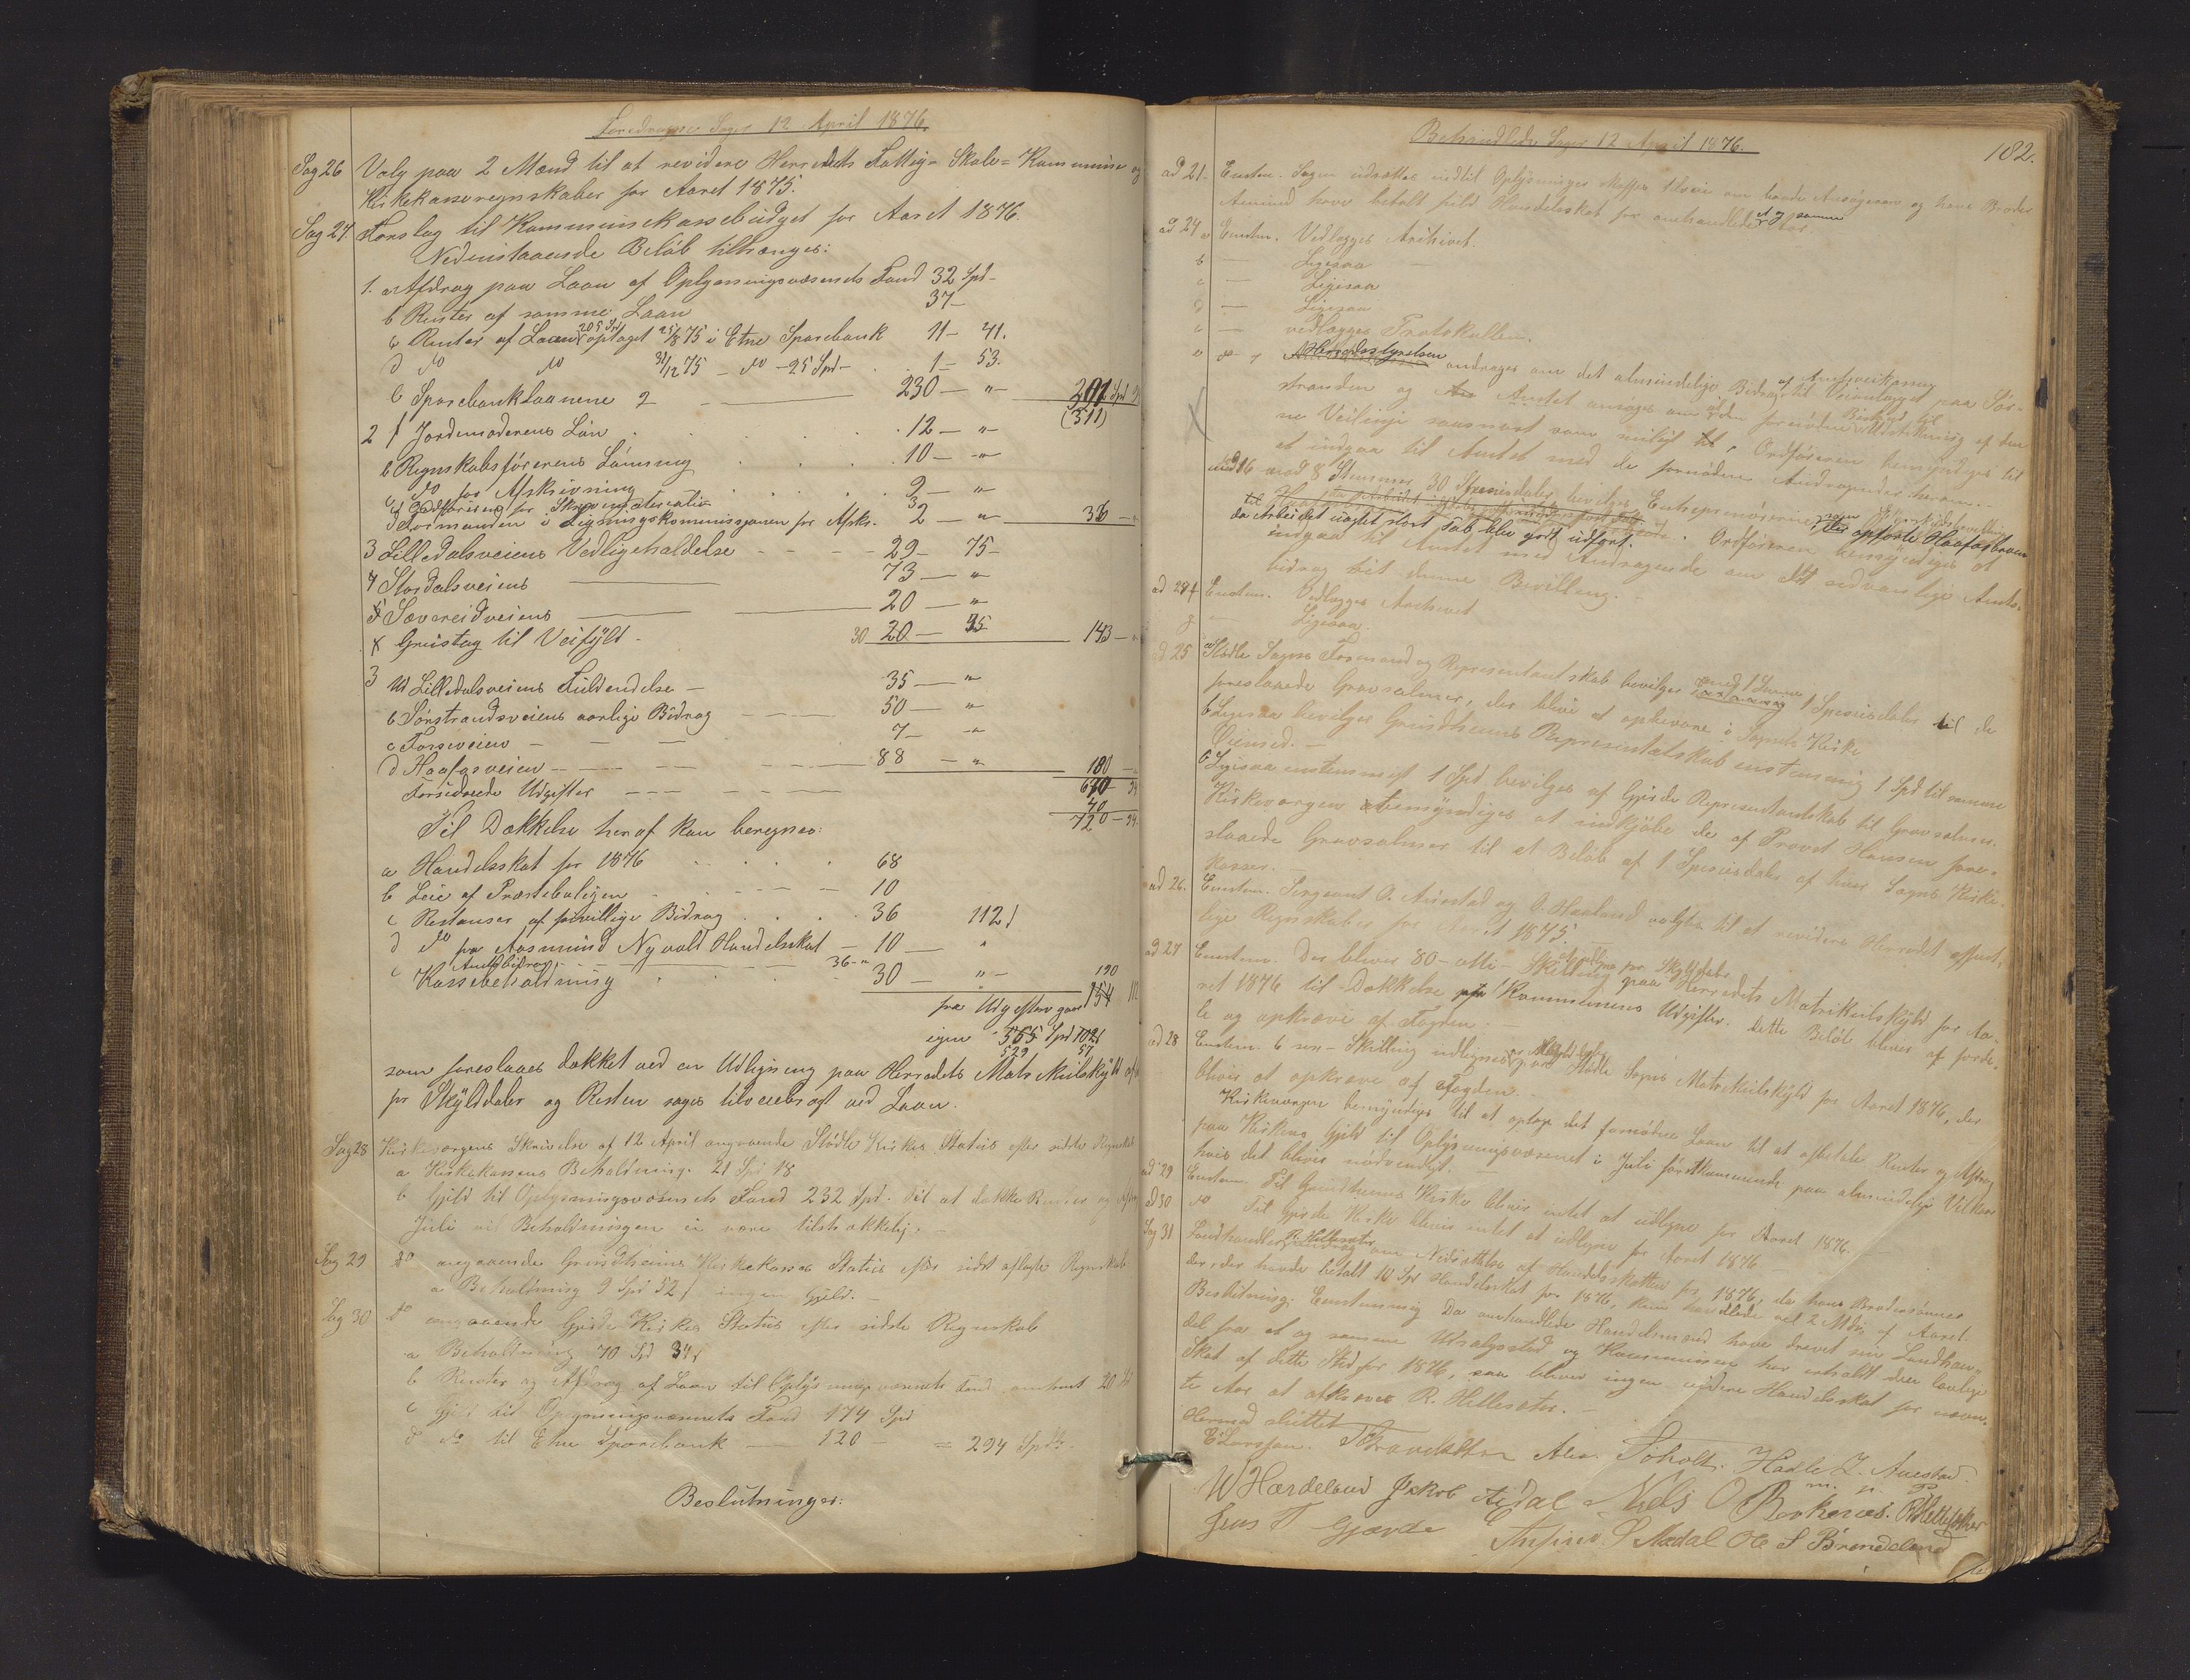 Foredragne Sager 12 April 1876.
Sag 26 Valg paa 2 Mænd til at revidere Herredets Fattig- Skole- Kommune og
Kirkekasseregnskaber for Aaret 1875.
Sag 27. Forslag til Kommunekassebudget for Aaret 1876.
Nedenstaaende Beløb tiltrænges:
1. a Afdrag paa Laan af Oplysningsvæsenets Fond 32 Spd -
b Renter af samme Laan 37 -
c Renter af Laan 205 Spd optaget 25/8 75 i Etne Sparebank 11 - 41.
d do do 31/12 75 - do - 25 Spd - 1 - 53.
e Sparebanklaanene 2 230 - " -
(311)
2 f Jordemoderens Løn 12 - "
b Regnskabsførerens Lønning 10 - "
c do for Afskrivning 9 - "
Ordføreren for Skrivematerialier 3
d Formanden i Ligningskommissjonen for Afskr. 2 - " 36 -
3 Lilledalsveiens Vedligeholdelse 29 - 75 -
4 Stordalsveiens 73 - "
5 Sævereidveiens 20 - "
Grustag til Veifyld - 30 20 - 143 -
3 a Lilledalsveiens Fuldendelse - 35 - "
b Sørstrandsveiens aarlige Bidrag 50 - "
c Fosseveien - 7 - "
d Haafosveien - 88 - " 180 -
Forskudte Udgifter
40
720 - 94.
Til Dækkelse heraf kan beregnes:
a Handelsskat for 1876 68
b Leie af Præsteboligen 10
c Restanser af frivillige Bidrag 36 112
d do fra Aasmund Nyvold Handelsskat - 10 - "
Amtsbidrag 36 - "
e Kassebeholdning 30 - " - 190
154
fra Udgifterne gaar
igjen 565 Spd 102
529 57
som foreslaaes dækket ved en Udligning paa Herredets Matrikulskyld
pr Skylddaler og Resten søges tilveiebragt ved Laan.
Sag 28 Kirkevergens Skrivelse af 12 April angaaende Stødle Kirkes Status efter sidste Regnskab
a Kirkekassens Beholdning. 21 Spd 18
b Gjeld til Oplysningsvæsenets Fond 232 Spd. Til at dække Renter og
Juli vil Beholdningen ei være tilstrækkelig. -
Sag 29 do angaaende Grindheims Kirkekasses Status efter sidst aflagte Regnskab
a Beholdning 9 Spd 52 / ingen Gjeld. -
Sag 30 do angaaende Gjerde Kirkes Status efter sidste Regnskab
a Beholdning 70 Spd 34
b Renter og Afdrag af Laan til Oplysningsvæsenets Fond omtrent 20
c Gjeld til Oplysningsvæsenets Fond 174 Spd
d do til Etne Sparebank - 120 - = 294 Spdlr.
Beslutninger:
Behandlede Sager 12 April 1876.
182.
ad 21. Enstm. Sagen udsættes indtil Oplysninger skaffes tilveie om baade Ansøgeren og hans Broder
Aamund have betalt fuld Handelsskat for omhandlede Aar.
ad 24 a Enstm. Vedlægges Arkivet.
b - Ligesaa
c - Ligesaa
d - Ligesaa
e - vedlægges Protokollen.
Herredsstyrelsen andrages om det almindelige Bidrag af Amtsveikassen til Veianlægget paa Sør-
stranden og Amtet ansøges om den fornødne Bistand til Udstikning af den-
ne Veilinje saasnart som muligt. Ordføreren bemyndiges til
at indgaa til Amtet med de fornødne Andragender herom.
med 16 mod 8 Stemmer 30 Spesiedaler bevilges Entreprenørerne som opførte Haafosbroen
da Arbeidet uagtet stort Tab blev godt udført. Ordføreren bemyndiges at
indgaa til Amtet med Andragende om det sedvanlige Amts-
bidrag til denne Bevilling. -
ad 24 f Enstm. Vedlægges Arkivet
g - Ligesaa.
ad 25 a Stødle Sogns Formand og Representantskab bevilger 1 Spesiedaler til de
foreslaaede Gravsalmer, der blive at opbevare i Sognets Kirke
b Ligesaa bevilger Grindheims Representatskab enstemmig 1 Spd til samme
Øiemed. -
c Ligesaa enstemmigt 1 Spd bevilges af Gjerde Representantskab til Gravsalmer.
Kirkevergen bemyndiges at indkjøbe de af Provst Hansen fore-
slaaede Gravsalmer til et Beløb af 1 Spesiedaler af hver Sogns Kirke-
kasser.
ad 26. Enstem. Sergeant O. Aurstad og O. Haaland valgtes til at revidere Herredet offent-
lige Regnskaber for Aaret 1875.
ad 27 Enstem. Der bliver 80 - otti - Skilling pr Skylddaler paa Herredets Matrikulskyld for Aa-
ret 1876 til Dækkelse Kommunens Udgifter. Dette Beløb bliver at forde-
le og opkræve af Fogden. -
ad 28 Enstem. 6 sex - Skilling udlignes pr Skylddaler paa Stødle Sogns Matrikulskyld for Aaret 1876, der
bliver at opkræve af Fogden. -
Kirkevergen bemyndiges til at optage det fornødne Laan til at afbetale Renter og Afdrag
paa Kirkens Gjeld til Oplysningsvæsenet i Juli førstkommende paa almindelige Vilkor
hvis det bliver nødvendigt. -
ad 29 Enstem. Til Grindheims Kirke bliver intet at udligne for Aaret 1876. -
ad 30 do Til Gjerde Kirke bliver intet at udligne for Aaret 1876
Sag 31 Landhandler R. Hellesæter Andrag om Nedsættelse af Handelsskatten for 1876, da hans Brodersønner
der, der havde betalt 10 Spd Handelsskat for 1876, kun handlede vel 2 Mdr. af Aaret.
Beslutning: Enstemmig Da omhandlede Handelsmænd have drevet sin Landhan-
del fra et og samme Udsalgssted og Kommunen har erholdt den lovlige
Skat af dette Sted for 1876, saa bliver ingen videre Handelsskat for nævn-
te Aar at afkræve R. Hellesæter. -
Hermed sluttet
E Larssen. Tho Frandsen Alex. Søholt. Halle L. Aurstad.
m. p. P.
W Hærdeland Jakob Aedal Niels O Berkenes. R Hellesæter
Jens T Gjærde Anfind S Nædal Ole S Brendeland